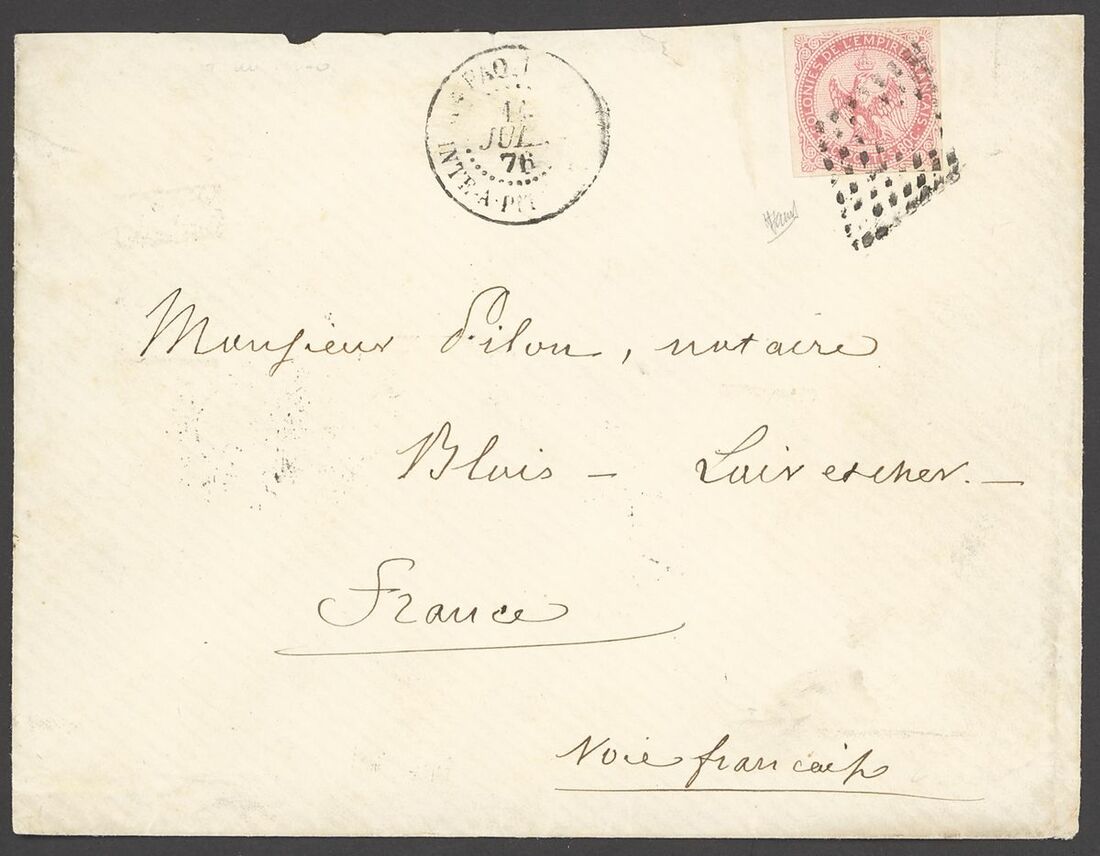 PAQ.
JUL.
76
INTE-A-PIT
COLONIES DE L'EMPIRE FRANÇAIS
Monsieur Pilon, notaire
Blois – Loir et cher. –
France
Voie française